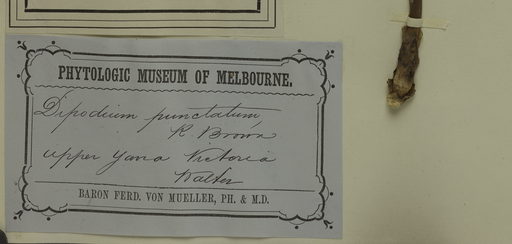 PHYTOLOGIC MUSEUM OF MELBOURNE.
Dipodium punctatum,
R. Brown
upper Yarra Victoria
Walter
BARON FERD. VON MUELLER, PH. & M.D.